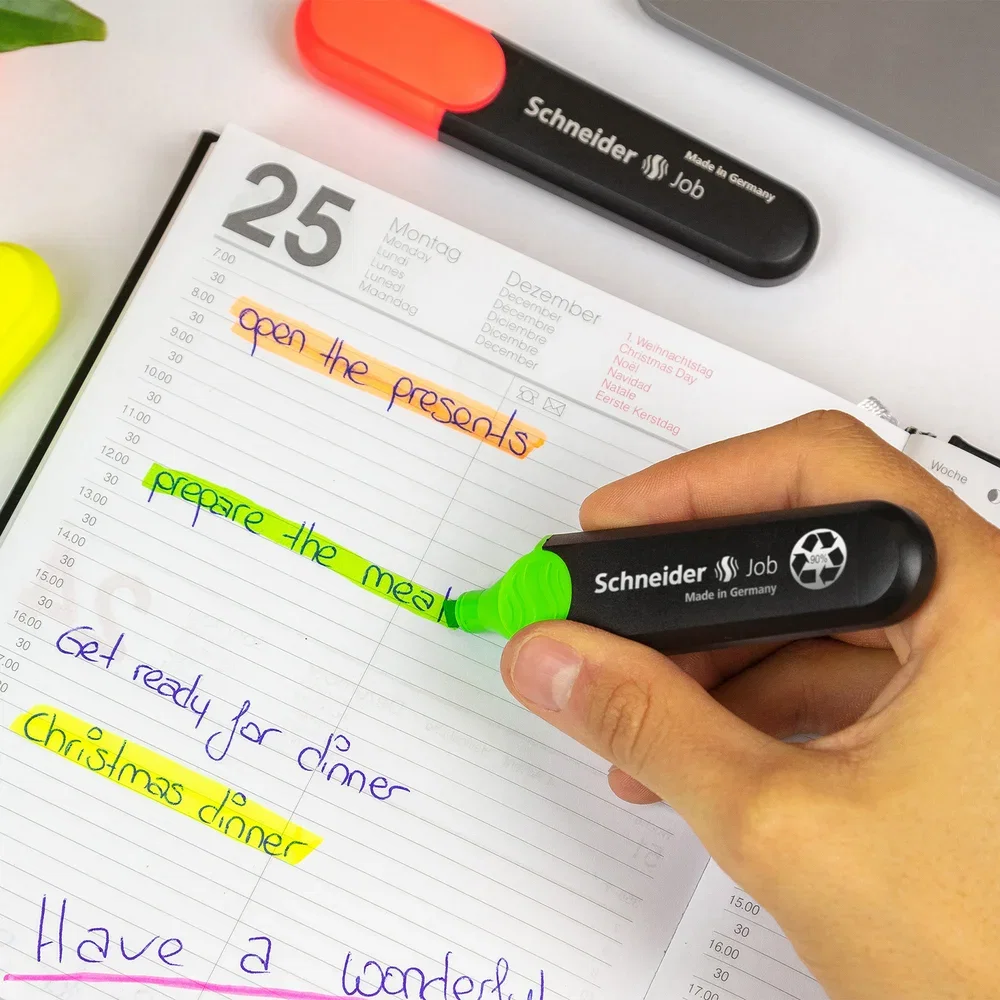 Schneider Job
Made in Germany
25
Montag
Monday
Lundi
Lunes
Lunedì
Maandag
Dezember
December
Décembre
Diciembre
Dicembre
December
1. Weihnachtstag
Christmas Day
Noël
Navidad
Natale
Eerste Kerstdag
Woche
7.00
30
8.00
30
9.00
30
10.00
30
11.00
30
12.00
30
13.00
30
14.00
30
15.00
30
16.00
30
open the presents
prepare the meal
Get ready for dinner
Christmas dinner
Have a wonderful
Schneider Job
Made in Germany
90%
15.00
30
16.00
30
17.00